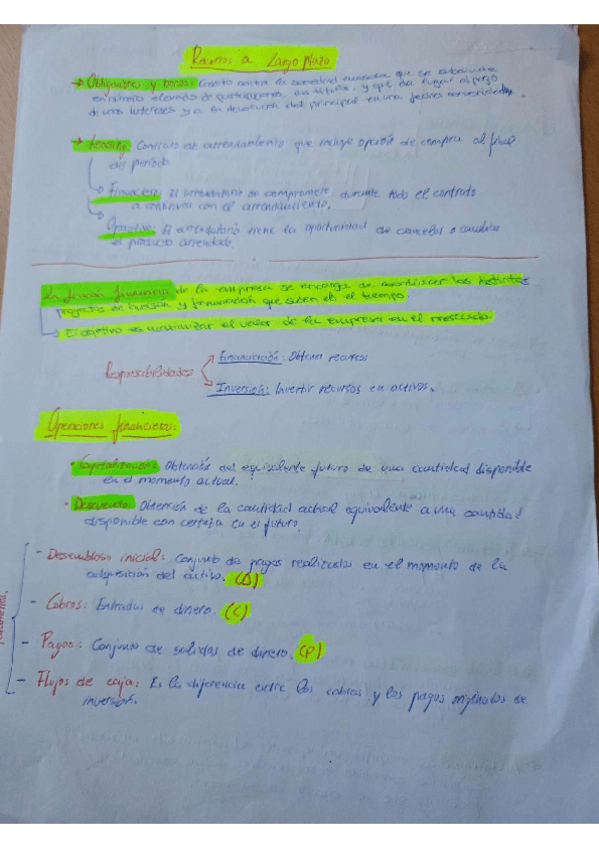 Recursos a Largo Plazo
→ Obligaciones y bonos: Crédito contra la sociedad emisora que se subdivide
en número elevado de participaciones, los títulos, y que da lugar al pago
de unos intereses y a la devolución del principal en una fecha
→ Leasing: Contrato de arrendamiento que incluye opción de compra al final
del período.
→ Financiero: El arrendatario se compromete, durante todo el contrato
a continuar con el arrendamiento.
→ Operativo: El arrendatario tiene la oportunidad de cancelar o cambiar
el producto arrendado.
La función financiera de la empresa se encarga de los distintos
proyectos de inversión y financiación que surgen en el tiempo.
→ El objetivo es maximizar el valor de la empresa en el mercado.
Responsabilidades
Financiación: Obtener recursos
Inversión: Invertir recursos en activos.
Operaciones financieras:
• Capitalización: Obtención del equivalente futuro de una cantidad disponible
en el momento actual.
• Descuento: Obtención de la cantidad actual equivalente a una cantidad
disponible con certeza en el futuro.
- Desembolso inicial: Conjunto de pagos realizados en el momento de la
adquisición del activo. (A)
- Cobros: Entradas de dinero. (C)
- Pagos: Conjunto de salidas de dinero. (P)
- Flujos de caja: Es la diferencia entre los cobros y los pagos originados de
inversión.